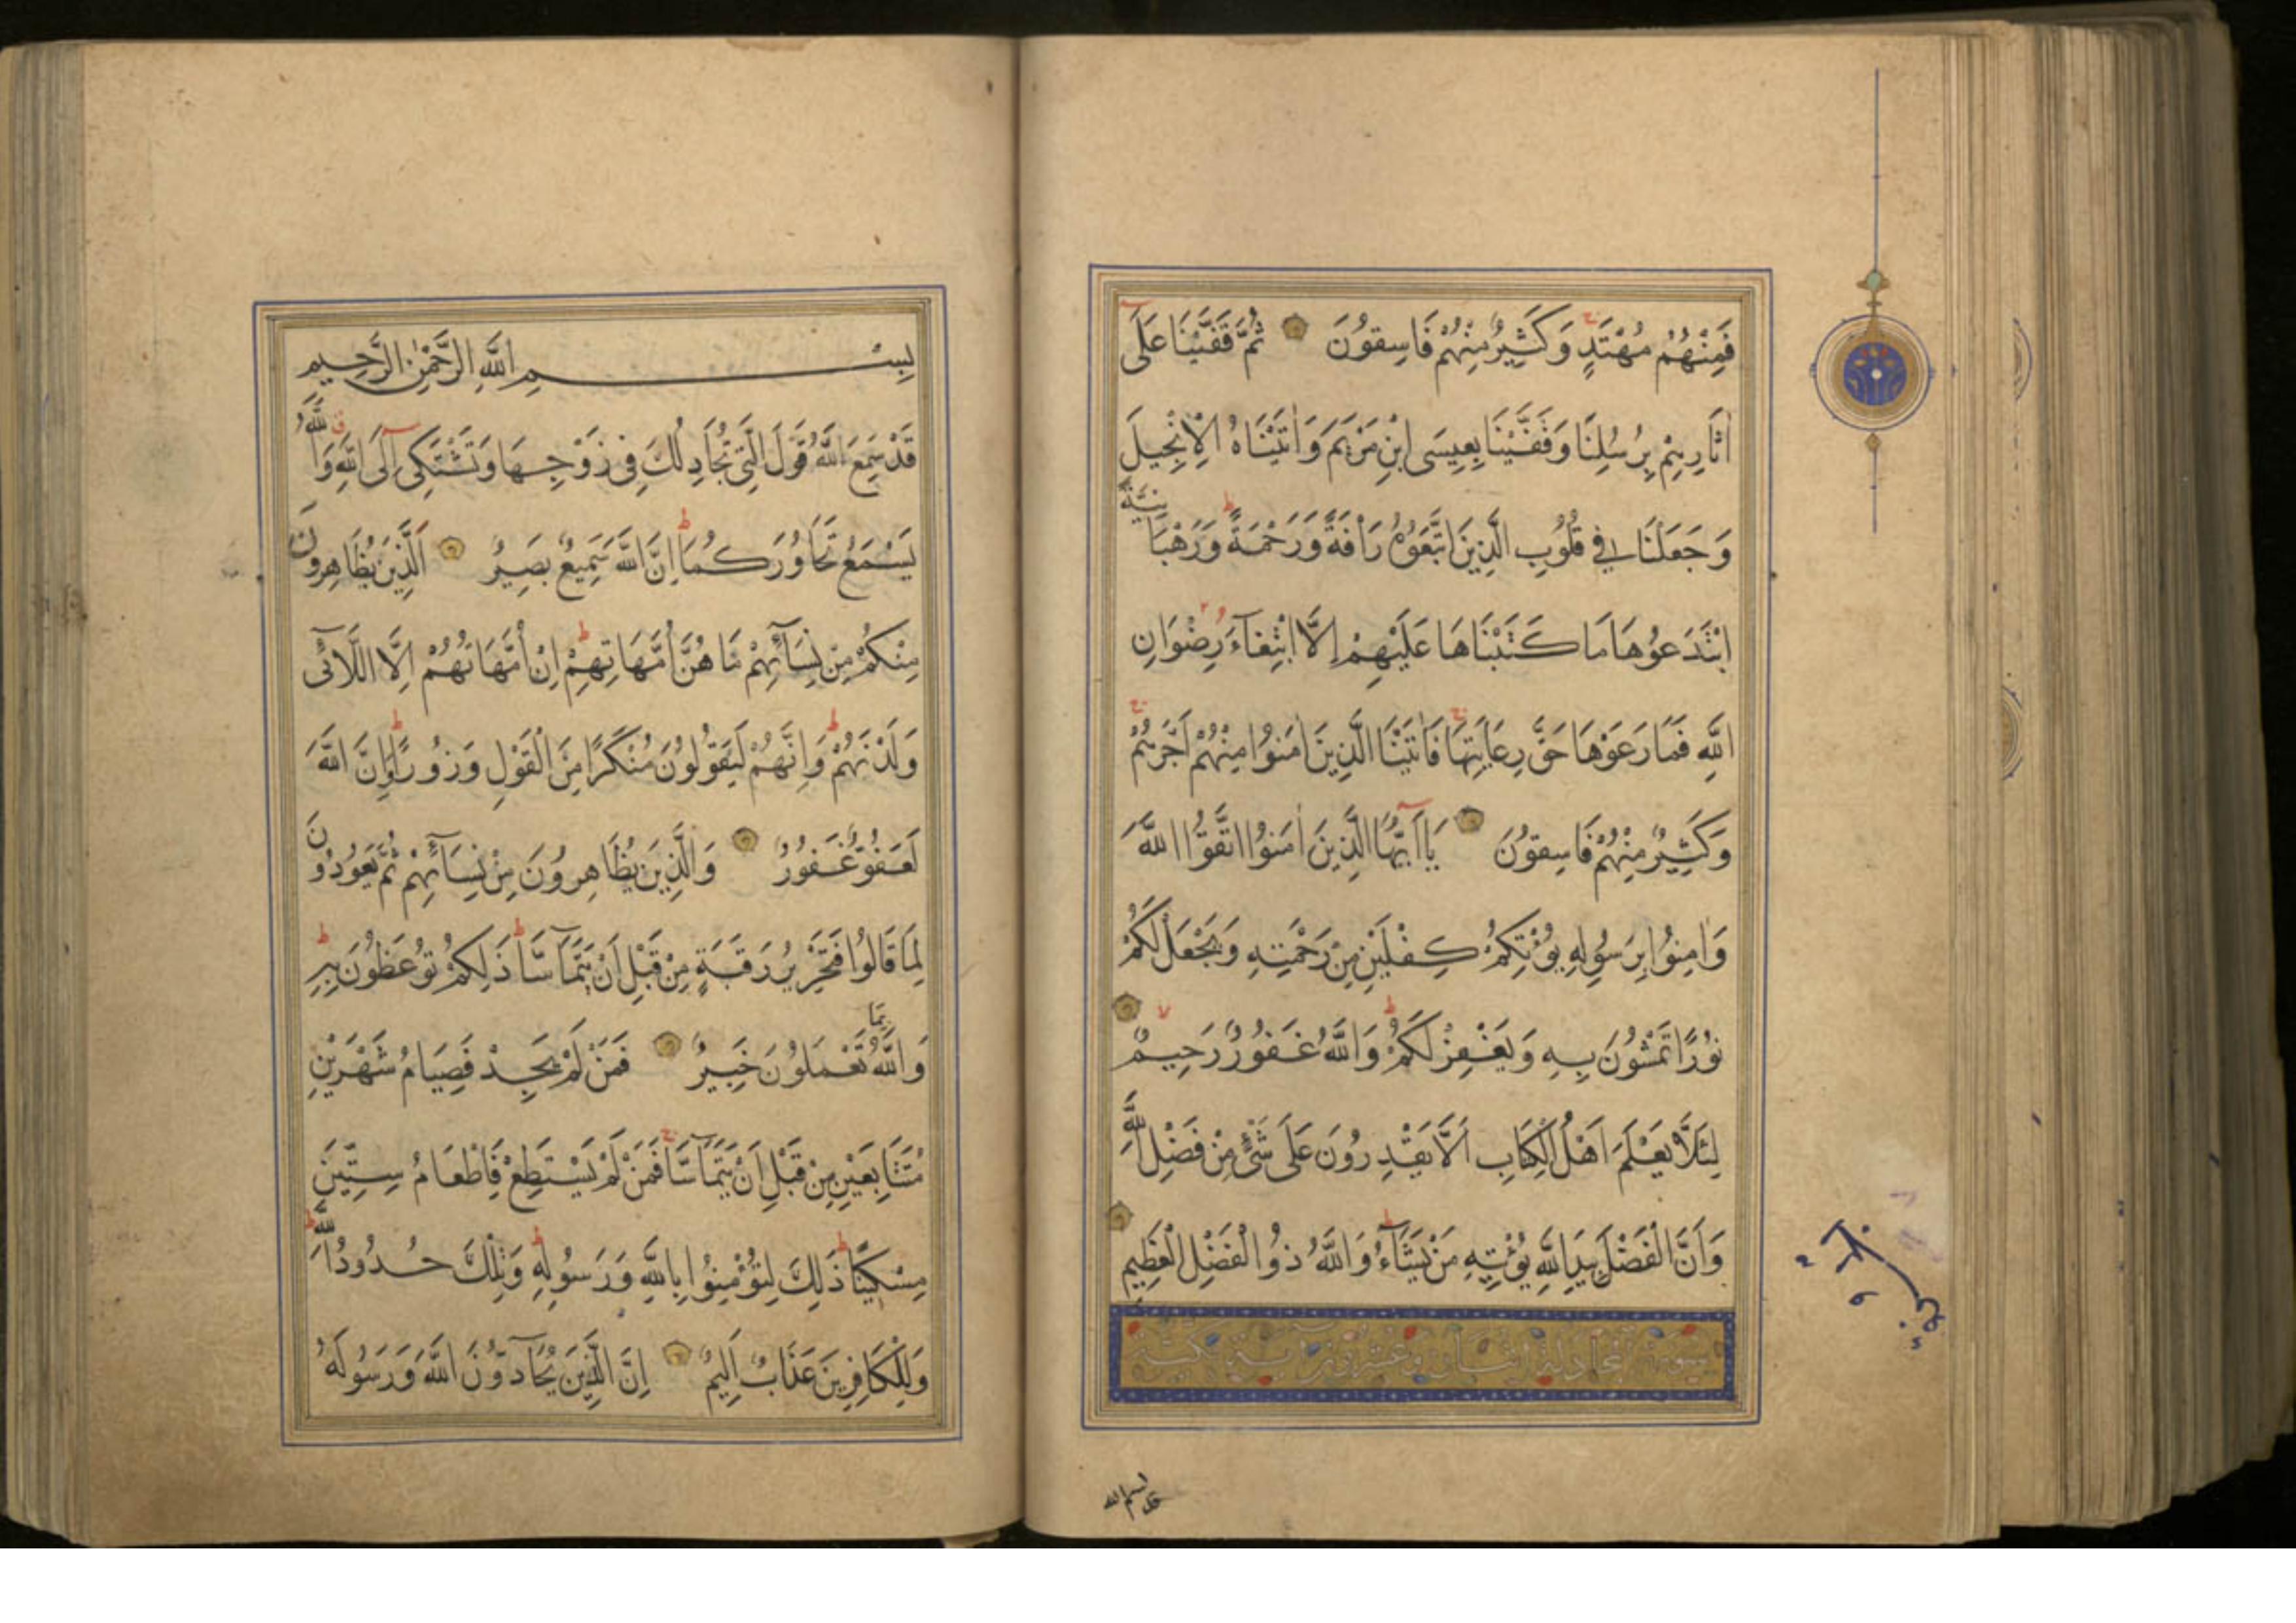 فَمِنْهُمْ مُهْتَدٍ وَكَثِيرٌ مِنْهُمْ فَاسِقُونَ ثُمَّ قَفَّيْنَا عَلَى
اٰثَارِهِمْ بِرُسُلِنَا وَقَفَّيْنَا بِعِيسَى ابْنِ مَرْيَمَ وَاٰتَيْنَاهُ الْاِنْجِيلَ
وَجَعَلْنَا فِي قُلُوبِ الَّذِينَ اتَّبَعُوهُ رَأْفَةً وَرَحْمَةً وَرَهْبَانِيَّةً
ابْتَدَعُوهَا مَا كَتَبْنَاهَا عَلَيْهِمْ اِلَّا ابْتِغَاءَ رِضْوَانِ
اللّٰهِ فَمَا رَعَوْهَا حَقَّ رِعَايَتِهَا فَاٰتَيْنَا الَّذِينَ اٰمَنُوا مِنْهُمْ اَجْرَهُمْ
وَكَثِيرٌ مِنْهُمْ فَاسِقُونَ يَا اَيُّهَا الَّذِينَ اٰمَنُوا اتَّقُوا اللّٰهَ
وَاٰمِنُوا بِرَسُولِهِ يُؤْتِكُمْ كِفْلَيْنِ مِنْ رَحْمَتِهِ وَيَجْعَلْ لَكُمْ
نُورًا تَمْشُونَ بِهِ وَيَغْفِرْ لَكُمْ وَاللّٰهُ غَفُورٌ رَحِيمٌ
لِئَلَّا يَعْلَمَ اَهْلُ الْكِتَابِ اَلَّا يَقْدِرُونَ عَلَى شَيْءٍ مِنْ فَضْلِ اللّٰهِ
وَاَنَّ الْفَضْلَ بِيَدِ اللّٰهِ يُؤْتِيهِ مَنْ يَشَاءُ وَاللّٰهُ ذُو الْفَضْلِ الْعَظِيمِ
سورة المجادلة اثنتان وعشرون
بِسْمِ اللّٰهِ الرَّحْمٰنِ الرَّحِيمِ
قَدْ سَمِعَ اللّٰهُ قَوْلَ الَّتِي تُجَادِلُكَ فِي زَوْجِهَا وَتَشْتَكِي اِلَى اللّٰهِ وَاللّٰهُ
يَسْمَعُ تَحَاوُرَكُمَا اِنَّ اللّٰهَ سَمِيعٌ بَصِيرٌ اَلَّذِينَ يُظَاهِرُونَ
مِنْكُمْ مِنْ نِسَائِهِمْ مَا هُنَّ اُمَّهَاتِهِمْ اِنْ اُمَّهَاتُهُمْ اِلَّا اللَّائِي
وَلَدْنَهُمْ وَاِنَّهُمْ لَيَقُولُونَ مُنْكَرًا مِنَ الْقَوْلِ وَزُورًا وَاِنَّ اللّٰهَ
لَعَفُوٌّ غَفُورٌ وَالَّذِينَ يُظَاهِرُونَ مِنْ نِسَائِهِمْ ثُمَّ يَعُودُونَ
لِمَا قَالُوا فَتَحْرِيرُ رَقَبَةٍ مِنْ قَبْلِ اَنْ يَتَمَاسَّا ذَلِكُمْ تُوعَظُونَ بِهِ
وَاللّٰهُ بِمَا تَعْمَلُونَ خَبِيرٌ فَمَنْ لَمْ يَجِدْ فَصِيَامُ شَهْرَيْنِ
مُتَتَابِعَيْنِ مِنْ قَبْلِ اَنْ يَتَمَاسَّا فَمَنْ لَمْ يَسْتَطِعْ فَاِطْعَامُ سِتِّينَ
مِسْكِينًا ذَلِكَ لِتُؤْمِنُوا بِاللّٰهِ وَرَسُولِهِ وَتِلْكَ حُدُودُ اللّٰهِ
وَلِلْكَافِرِينَ عَذَابٌ اَلِيمٌ اِنَّ الَّذِينَ يُحَادُّونَ اللّٰهَ وَرَسُولَهُ